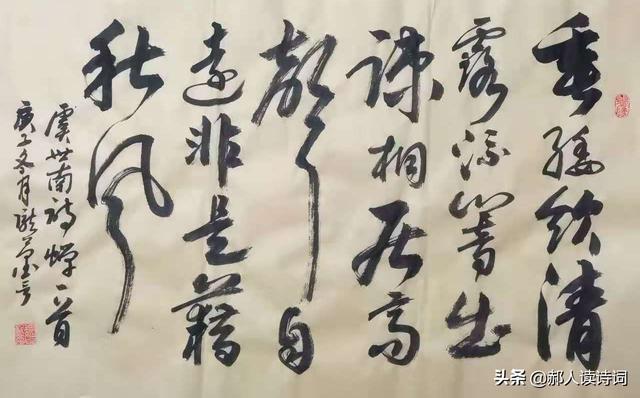 垂緌飲清
露流響出
疎桐居高
聲自
遠非是藉
秋風
虞世南詩蟬一首
庚子冬月
头条 @郝人读诗词